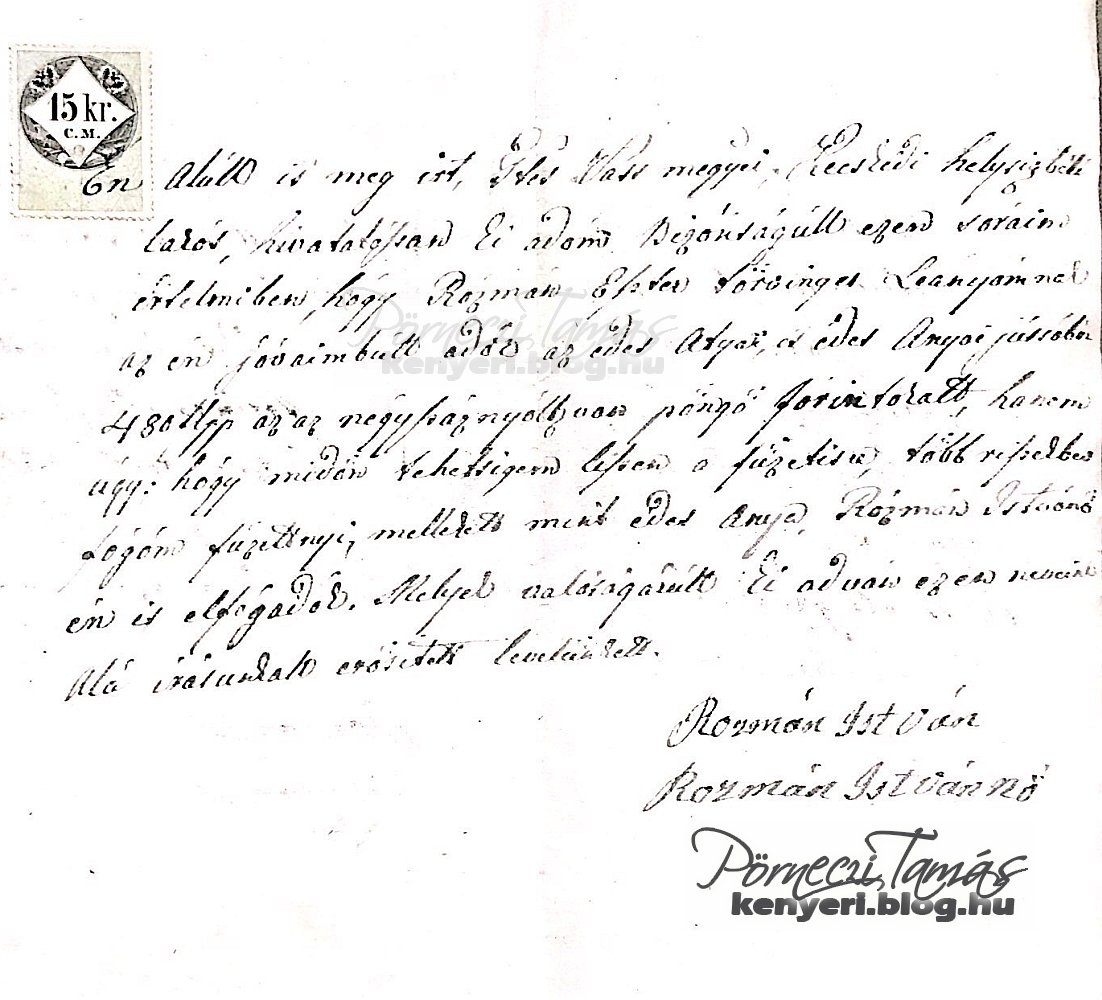 15 kr.
C.M.
6n
Alúll is meg irt, Ttes Vass megyei, Kecskédi helysizbéli
lakós, hivatalossan ki adom Bizónságúll ezen sóraim
értelmiben, hógy Rózmán Eszter törvinyes Leányámnak
az én jóvaimbull adok az édes Atyai, is édes Anyai jússóbn
480 az az négyszáznyóltzvan pöngő fórintokatt, hanem
úgy: hógy midőn tehetsigem liszen a fizetisre, több riszekben
fógom fizettnyi, mellekett mint édes Anya, Rózmán Istvánő
én is elfógadok. Melyek valóságárúll ki adván ezen neveink
Alá irásunkall erősitett levelünkett.
Rozmán István
Rozmán Istvánnő
Pörneczi Tamás
kenyeri.blog.hu
Pörneczi Tamás
kenyeri.blog.hu